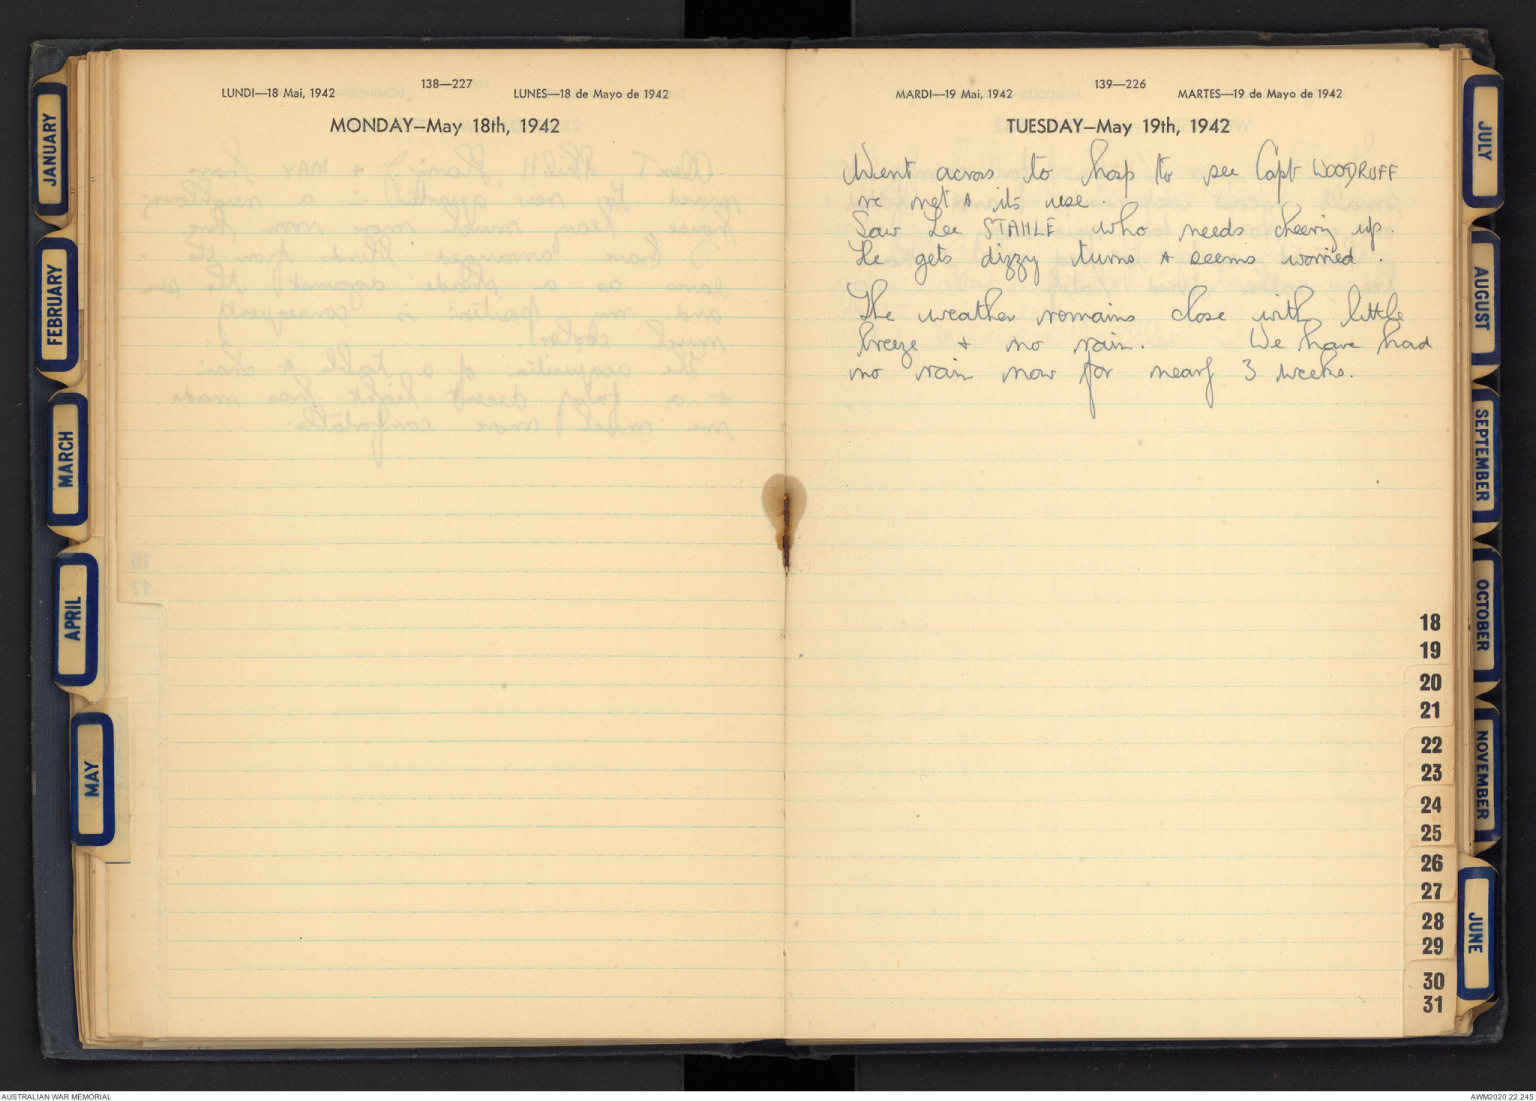 JANUARY
FEBRUARY
MARCH
APRIL
MAY
138—227
LUNDI—18 Mai, 1942
LUNES—18 de Mayo de 1942
MONDAY—May 18th, 1942
139—226
MARDI—19 Mai, 1942
MARTES—19 de Mayo de 1942
TUESDAY—May 19th, 1942
Went across to hosp to see Capt WOODRUFF
re net & its use.
Saw Lee STAHLE who needs cheering up.
He gets dizzy turns & seems worried.
The weather remains close with little
breeze + no rain. We have had
no rain now for nearly 3 weeks.
18
19
20
21
22
23
24
25
26
27
28
29
30
31
JULY
AUGUST
SEPTEMBER
OCTOBER
NOVEMBER
JUNE
AUSTRALIAN WAR MEMORIAL
AWM2020.22.245